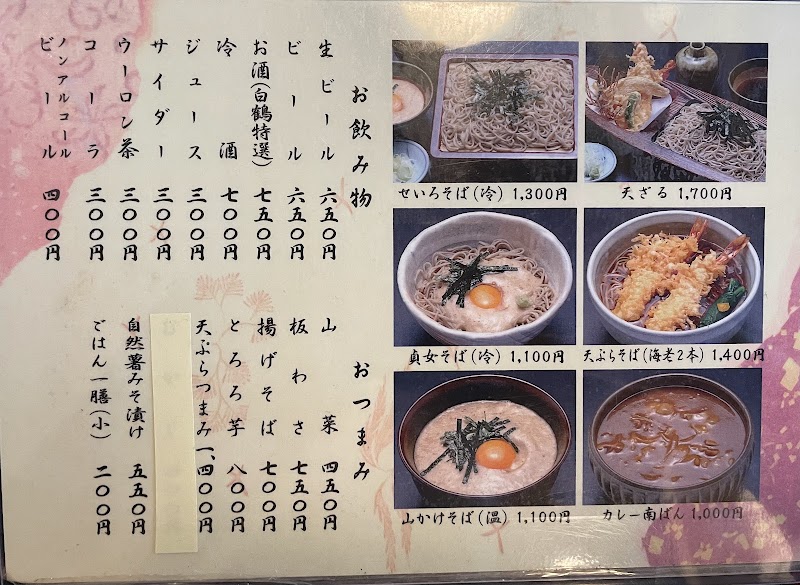 お飲み物
生ビール 六五〇円
ビール 六五〇円
お酒(白鶴特選) 七五〇円
冷酒 七〇〇円
ジュース 三〇〇円
サイダー 三〇〇円
ウーロン茶 三〇〇円
コーラ 三〇〇円
ノンアルコール
ビール 四〇〇円
おつまみ
山菜 四五〇円
板わさ 七五〇円
揚げそば 七〇〇円
とろろ芋 八〇〇円
天ぷらつまみ 一、四〇〇円
自然薯みそ漬け 五五〇円
ごはん一膳(小) 二〇〇円
せいろそば(冷) 1,300円
天ざる 1,700円
貞女そば(冷) 1,100円
天ぷらそば(海老2本) 1,400円
山かけそば(温) 1,100円
カレー南ばん 1,000円